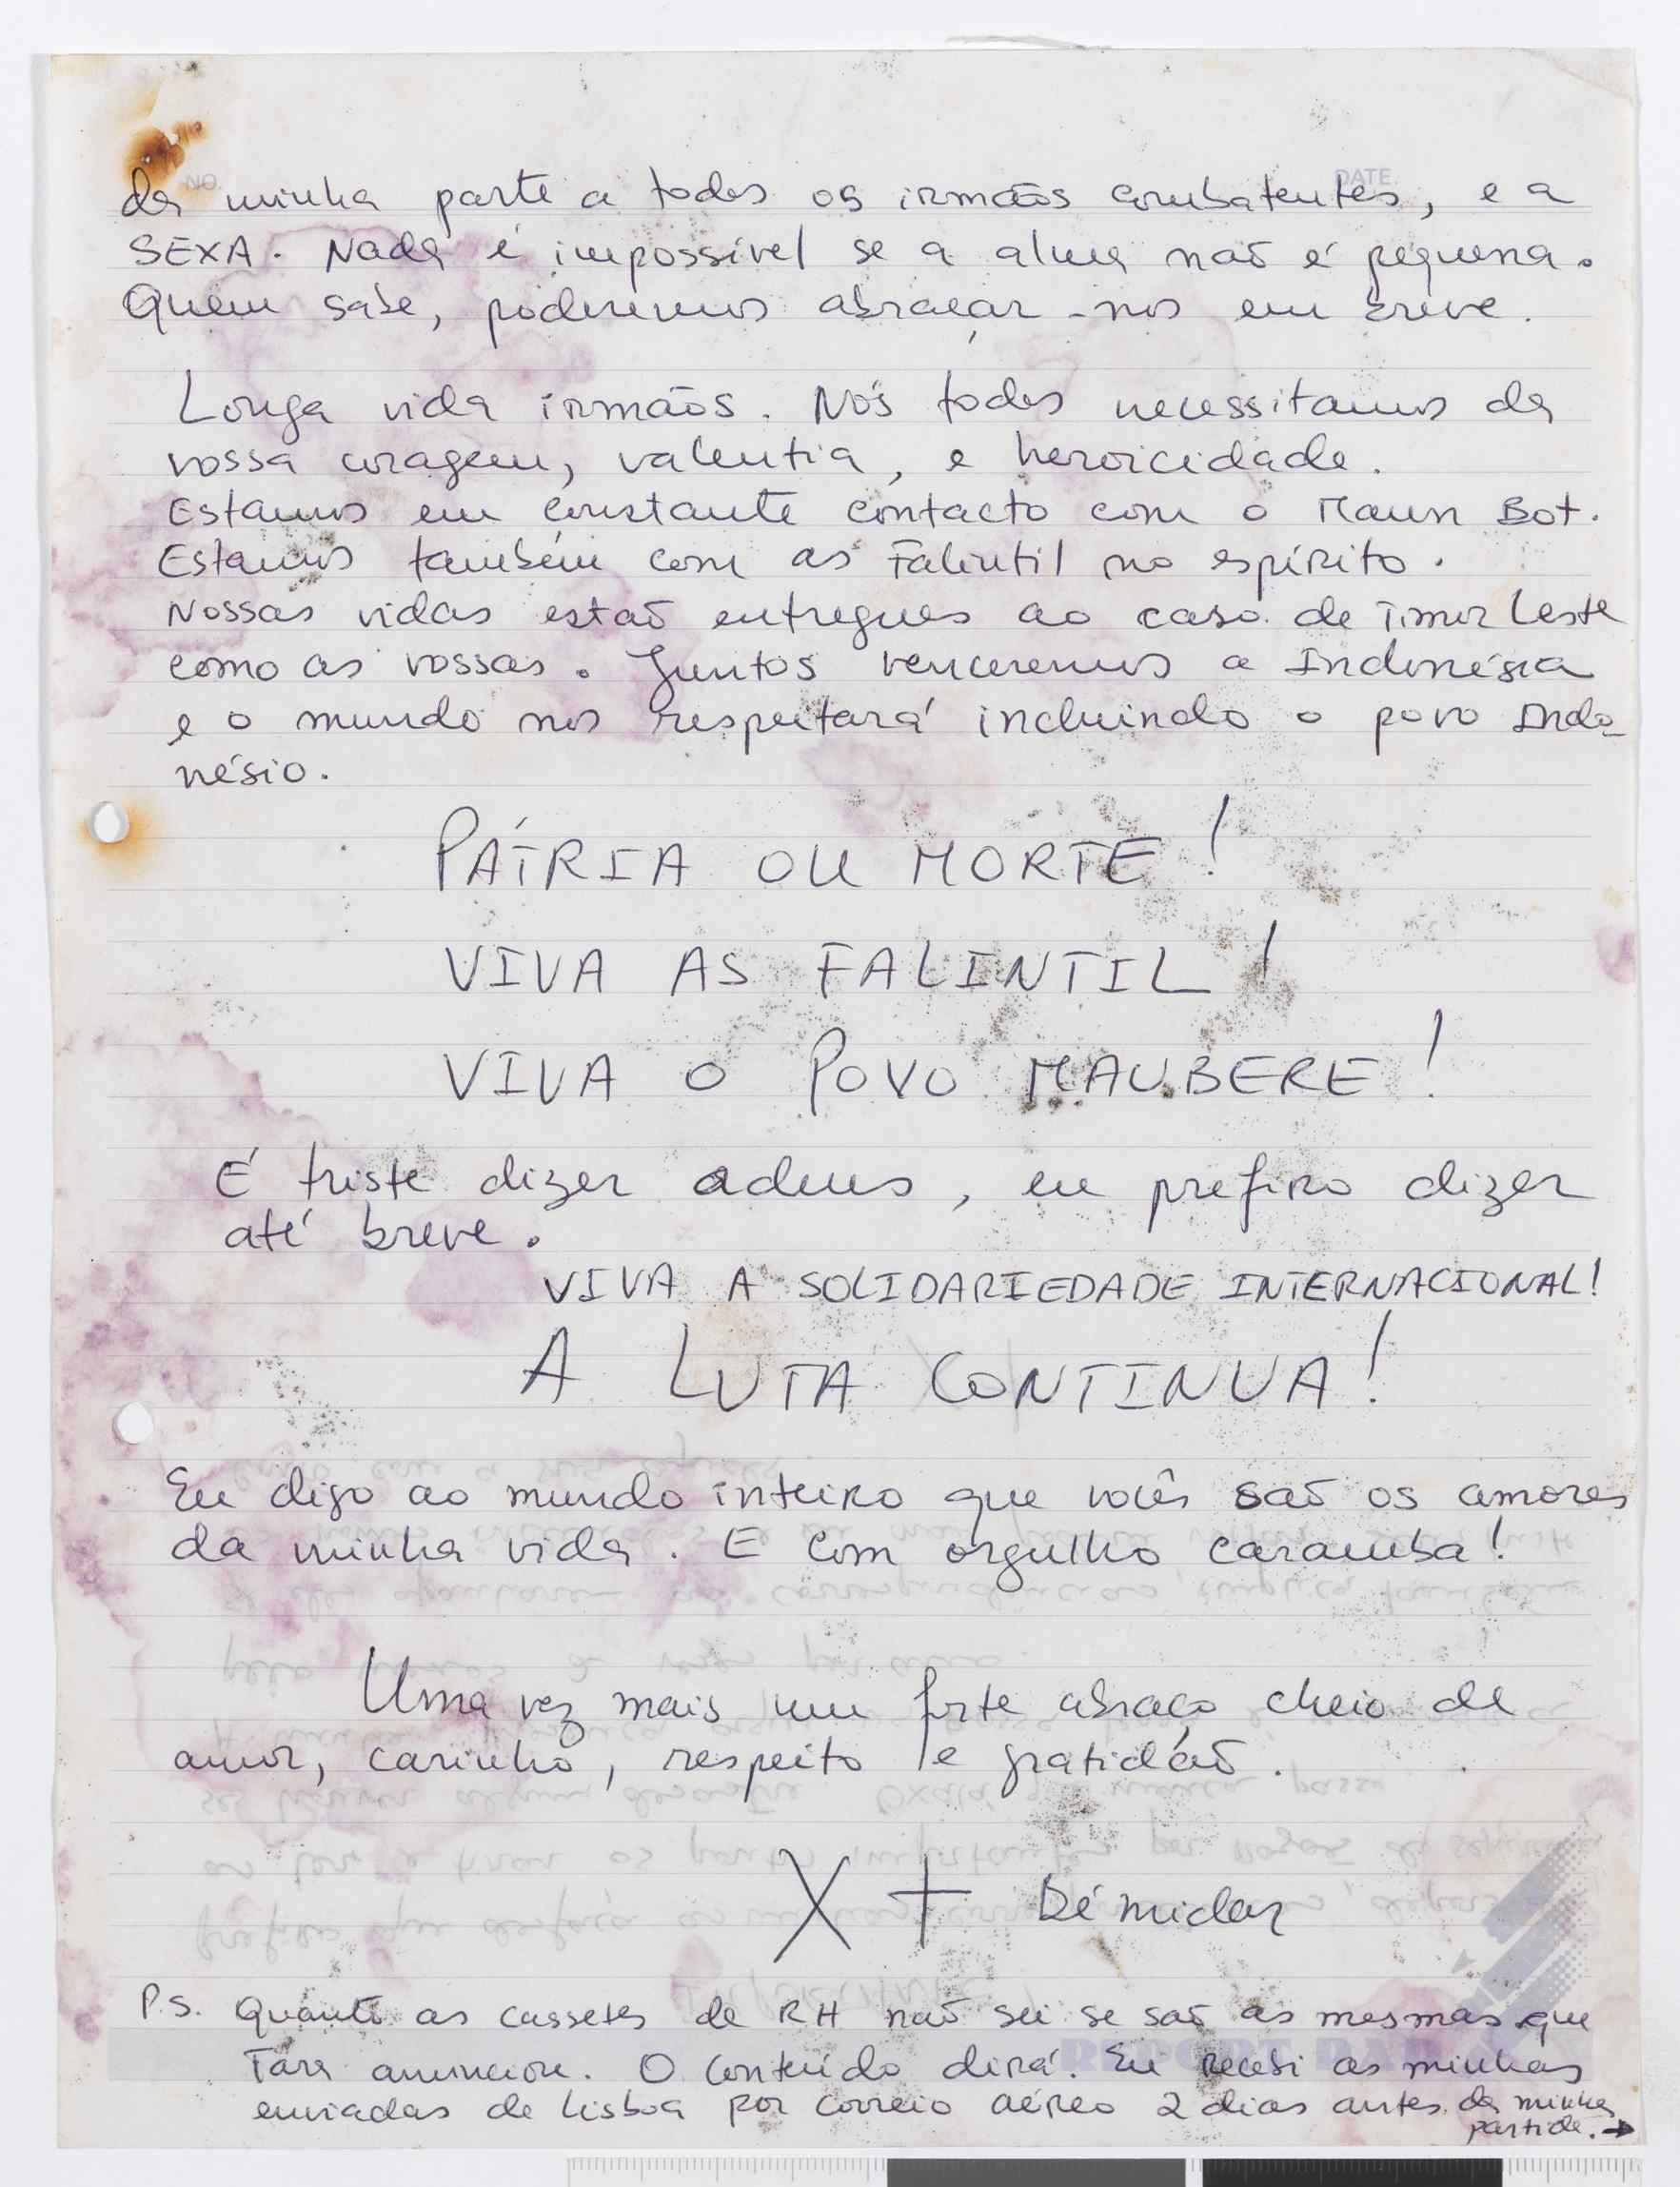 NO. DATE
da minha parte a todos os irmãos combatentes, e a
SEXA. Nada é impossível se a alma não é pequena.
Quem sabe, poderemos abraçar-nos em breve.
Longa vida irmãos. Nós todos necessitamos da
vossa coragem, valentia, e heroicidade.
Estamos em constante contacto com o Maun Bot.
Estamos também com as Falintil no espírito.
Nossas vidas estão entregues ao caso de Timor Leste
como as vossas. Juntos venceremos a Indonésia
e o mundo nos respeitará incluindo o povo Indo-
nésio.
PÁTRIA OU MORTE!
VIVA AS FALINTIL!
VIVA O POVO MAUBERE!
É triste dizer adeus, eu prefiro dizer
até breve.
VIVA A SOLIDARIEDADE INTERNACIONAL!
A LUTA CONTINUA!
Eu digo ao mundo inteiro que vocês são os amores
da minha vida. E com orgulho caramba!
Uma vez mais um forte abraço cheio de
amor, carinho, respeito e gratidão.
X + Bé midar
P.S. Quanto as cassetes de RH não sei se são as mesmas que
Tara anunciou. O conteúdo dirá. Eu recebi as minhas
enviadas de Lisboa por correio aéreo 2 dias antes da minha
partida. →